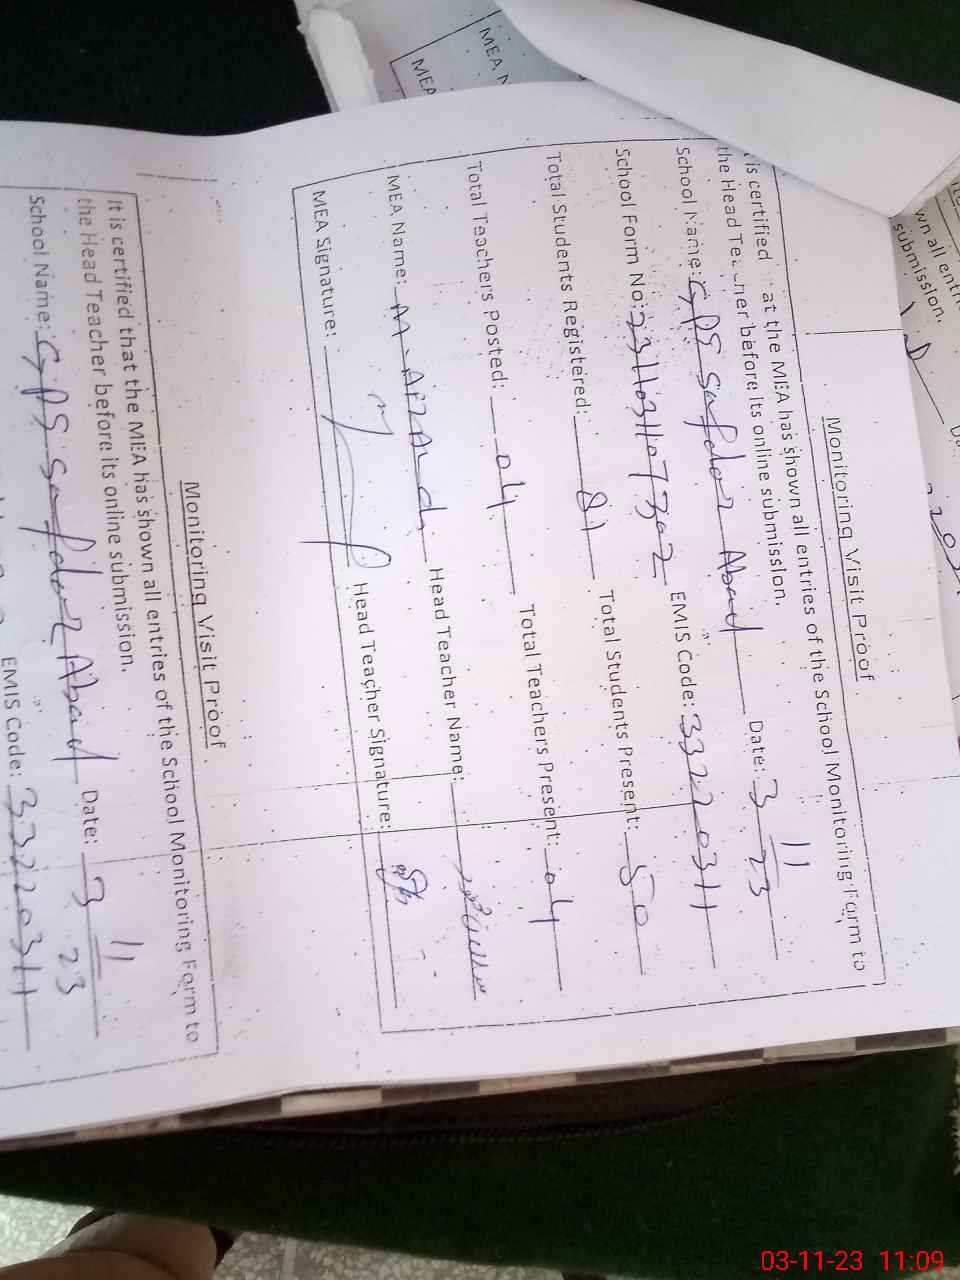 Monitoring Visit Proof
is certified at the MEA has shown all entries of the School Monitoring Form to
the Head Teacher before its online submission.
School Name: GPS Safdar Abad Date: 3 11 23
School Form No: EMIS Code: 33220311
Total Students Registered: 81 Total Students Present: 50
Total Teachers Posted: 04 Total Teachers Present: 04
MEA Name: M. Head Teacher Name:
MEA Signature: Head Teacher Signature:
Monitoring Visit Proof
It is certified that the MEA has shown all entries of the School Monitoring Form to
the Head Teacher before its online submission.
School Name: GPS Safdar Abad Date: 3 11 23
EMIS Code: 33220311
MEA
MEA
submission.
03-11-23 11:09